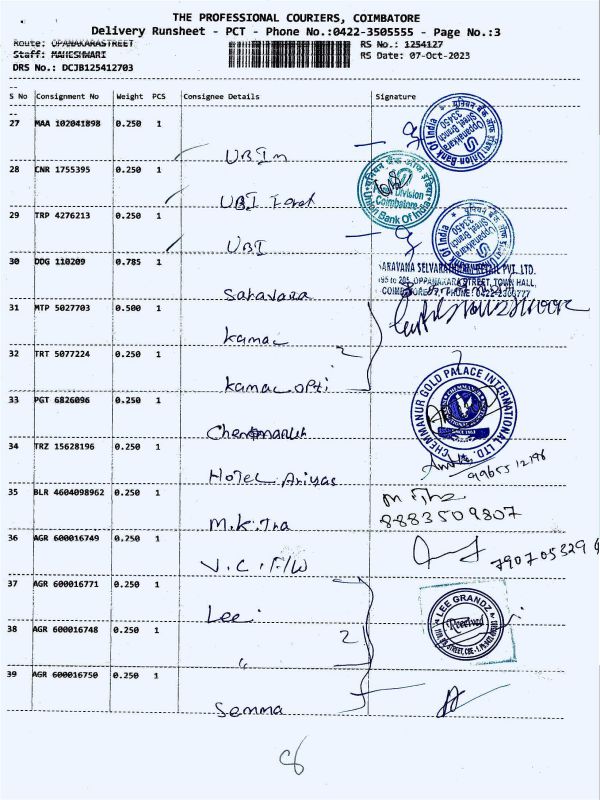 THE PROFESSIONAL COURIERS, COIMBATORE
Delivery Runsheet - PCT - Phone No.:0422-3505555 - Page No.:3
Route: OPANAKARASTREET
RS No.: 1254127
Staff: MAHESHWARI
RS Date: 07-Oct-2023
DRS No.: DCJB125412703
S No Consignment No Weight PCS Consignee Details Signature
27 MAA 102041898 0.250 1
UBI m
28 CNR 1755395 0.250 1
UBI
29 TRP 4276213 0.250 1
UBI
30 DDG 110209 0.785 1
Saravana
31 MTP 5027703 0.500 1
Kamal
32 TRT 5077224 0.250 1
Kamal opti
2
33 PGT 6826096 0.250 1
Chemmanur
34 TRZ 15628196 0.250 1
Hotel Ariyas
35 BLR 4604098962 0.250 1
M.K.Tra
36 AGR 600016749 0.250 1
V.C. F/W
37 AGR 600016771 0.250 1
Lee
38 AGR 600016748 0.250 1
"
2
39 AGR 600016750 0.250 1
Semma
यूनियन बैंक ऑफ इंडिया
Union Bank Of India
Oppanakkara
Street Branch
33450
यूनियन बैंक ऑफ इंडिया
Division
Coimbatore
Union Bank Of India
Union Bank Of India
Oppanakkara
Street Branch
33450
ARAVANA SELVARATHNAM RETAIL PVT. LTD.
OPPANAKARA STREET, TOWN HALL,
CHEMMANUR GOLD PALACE INTERNATIONAL LTD.
SINCE 1863
8883509807
LEE GRANDZ
Received
8